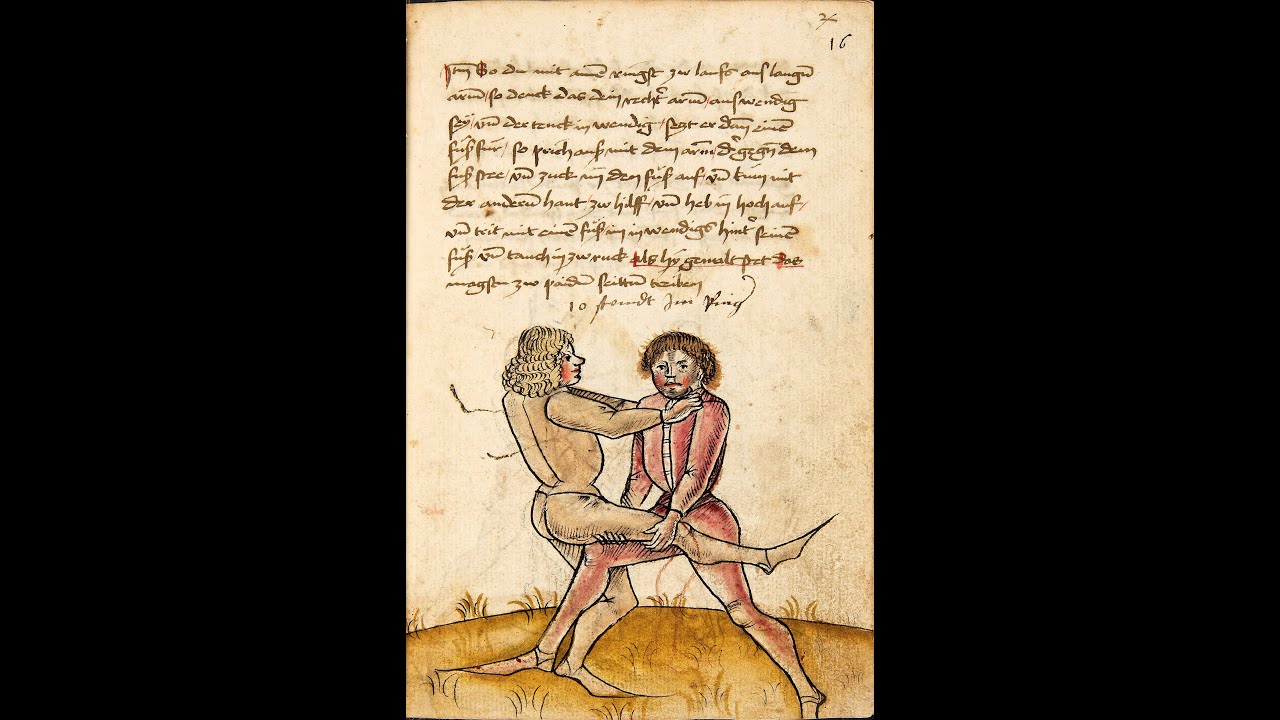 16
Itm So du mit aine̅ ringst zw lauffs aus langn̅
arm̅ / so denck das dein recht' arm̅ auswendig
sey / vn̅ der tenck in wendig / seczt er dan̅ einen
fuß für / so prich auß mit dem arm̅ d' gegn̅ dem
fuß stee / vn̅ zuck im den fuß auf / vn̅ kum̅ mit
der andern̅ hant zw hilff / vn̅ heb in hoch auf /
vn̅ trit mit einen fuß im in wendigs hint' seinen
fuß vn̅ tauch in zw ruck als hy gemalt stet das
magstu zw paiden̅ seittn̅ treiben
10 stondt Im Ring